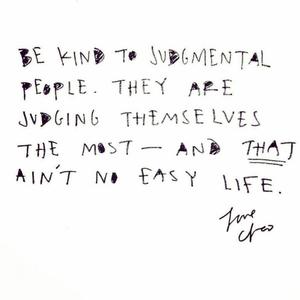 BE KIND TO JUDGMENTAL
PEOPLE. THEY ARE
JUDGING THEMSELVES
THE MOST — AND THAT
AIN'T NO EASY LIFE.
love
cleo